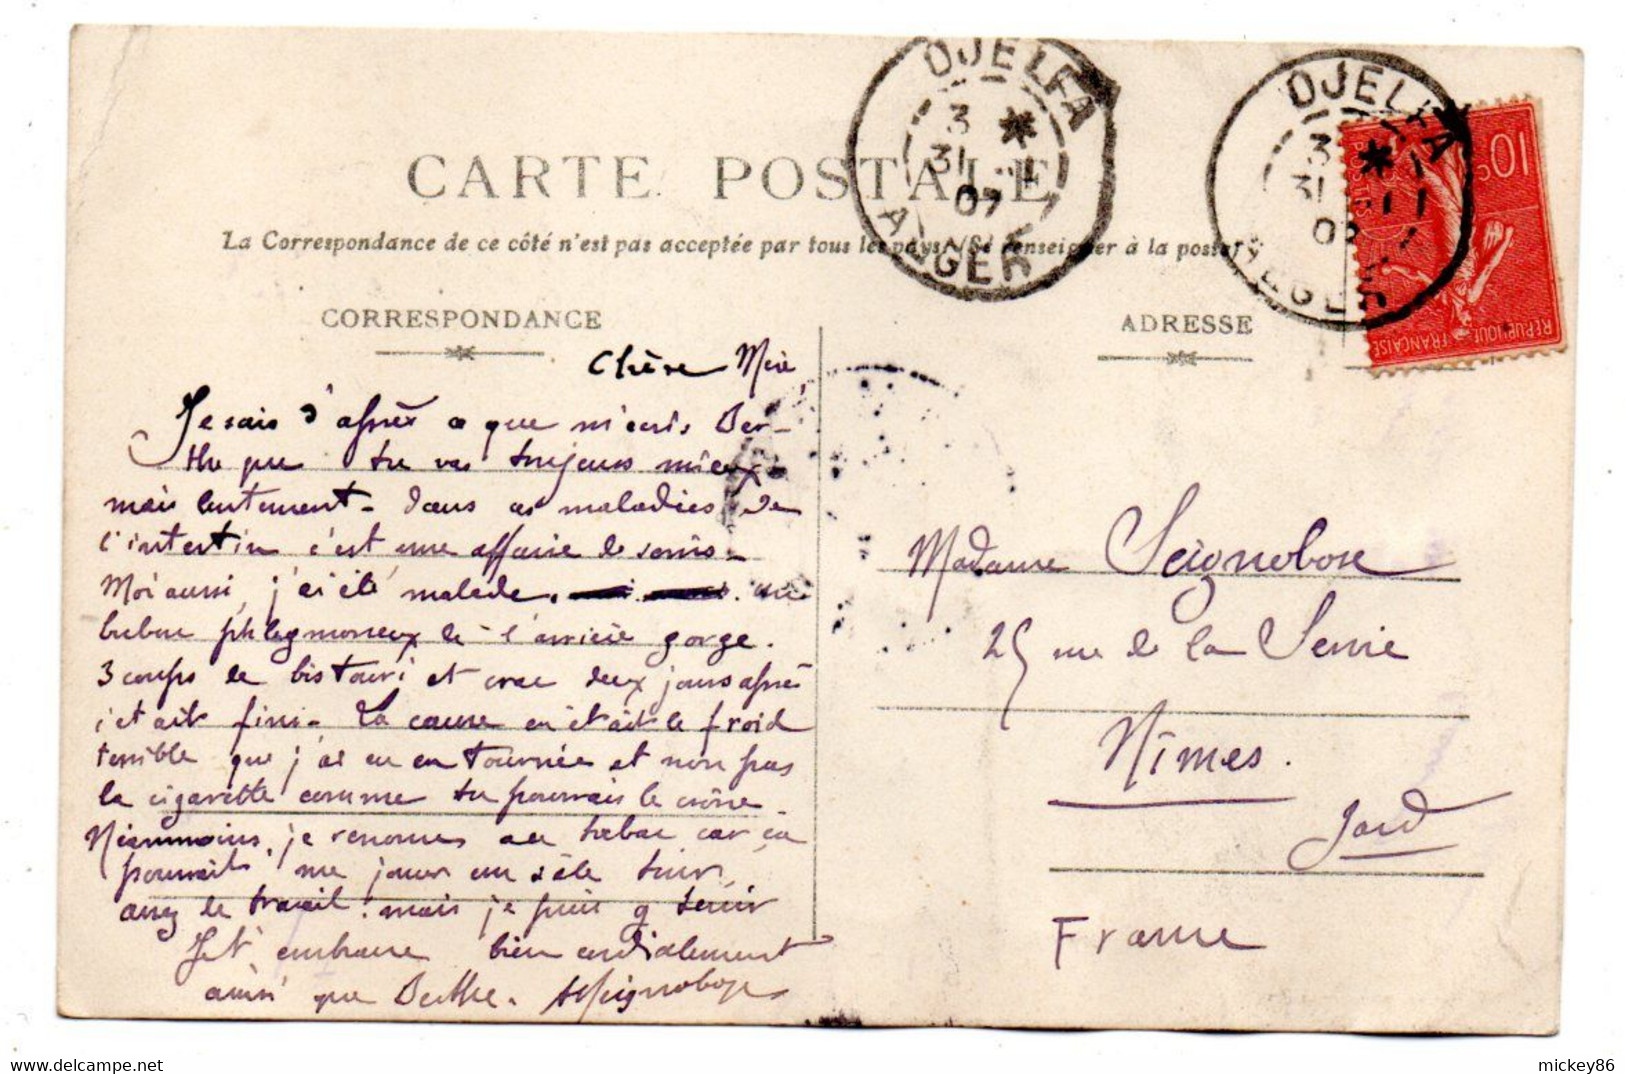 CARTE POSTALE
La Correspondance de ce côté n'est pas acceptée par tous les pays (Se renseigner à la poste)
DJELFA
3 *
31 -1
07
ALGER
DJELFA
3 *
31 -1
07
ALGER
10c
POSTES
REPUBLIQUE FRANÇAISE
CORRESPONDANCE
Chère Mère,
Je sais d'après ce que m'écris Ber-
the que tu vas toujours mieux
mais lentement - dans ces maladies de
l'intestin c'est une affaire de soins -
Moi aussi, j'ai été malade. un
bubon phlegmoneux de l'arrière gorge.
3 coups de bistouri et crac deux jours après
c'etait fini - La cause en était le froid
terrible que j'ai eu en tournée et non pas
la cigarette comme tu pourrais le croire -
Néanmoins, je renonce au tabac car ça
pourrait me jouer un sale tour
assez de travail. mais je puis y tenir
Je t'embrasse bien cordialement
ainsi que Berthe. Seignobosc
ADRESSE
Madame Seignobosc
25 rue de la Servie
Nîmes.
Gard
France
mickey86